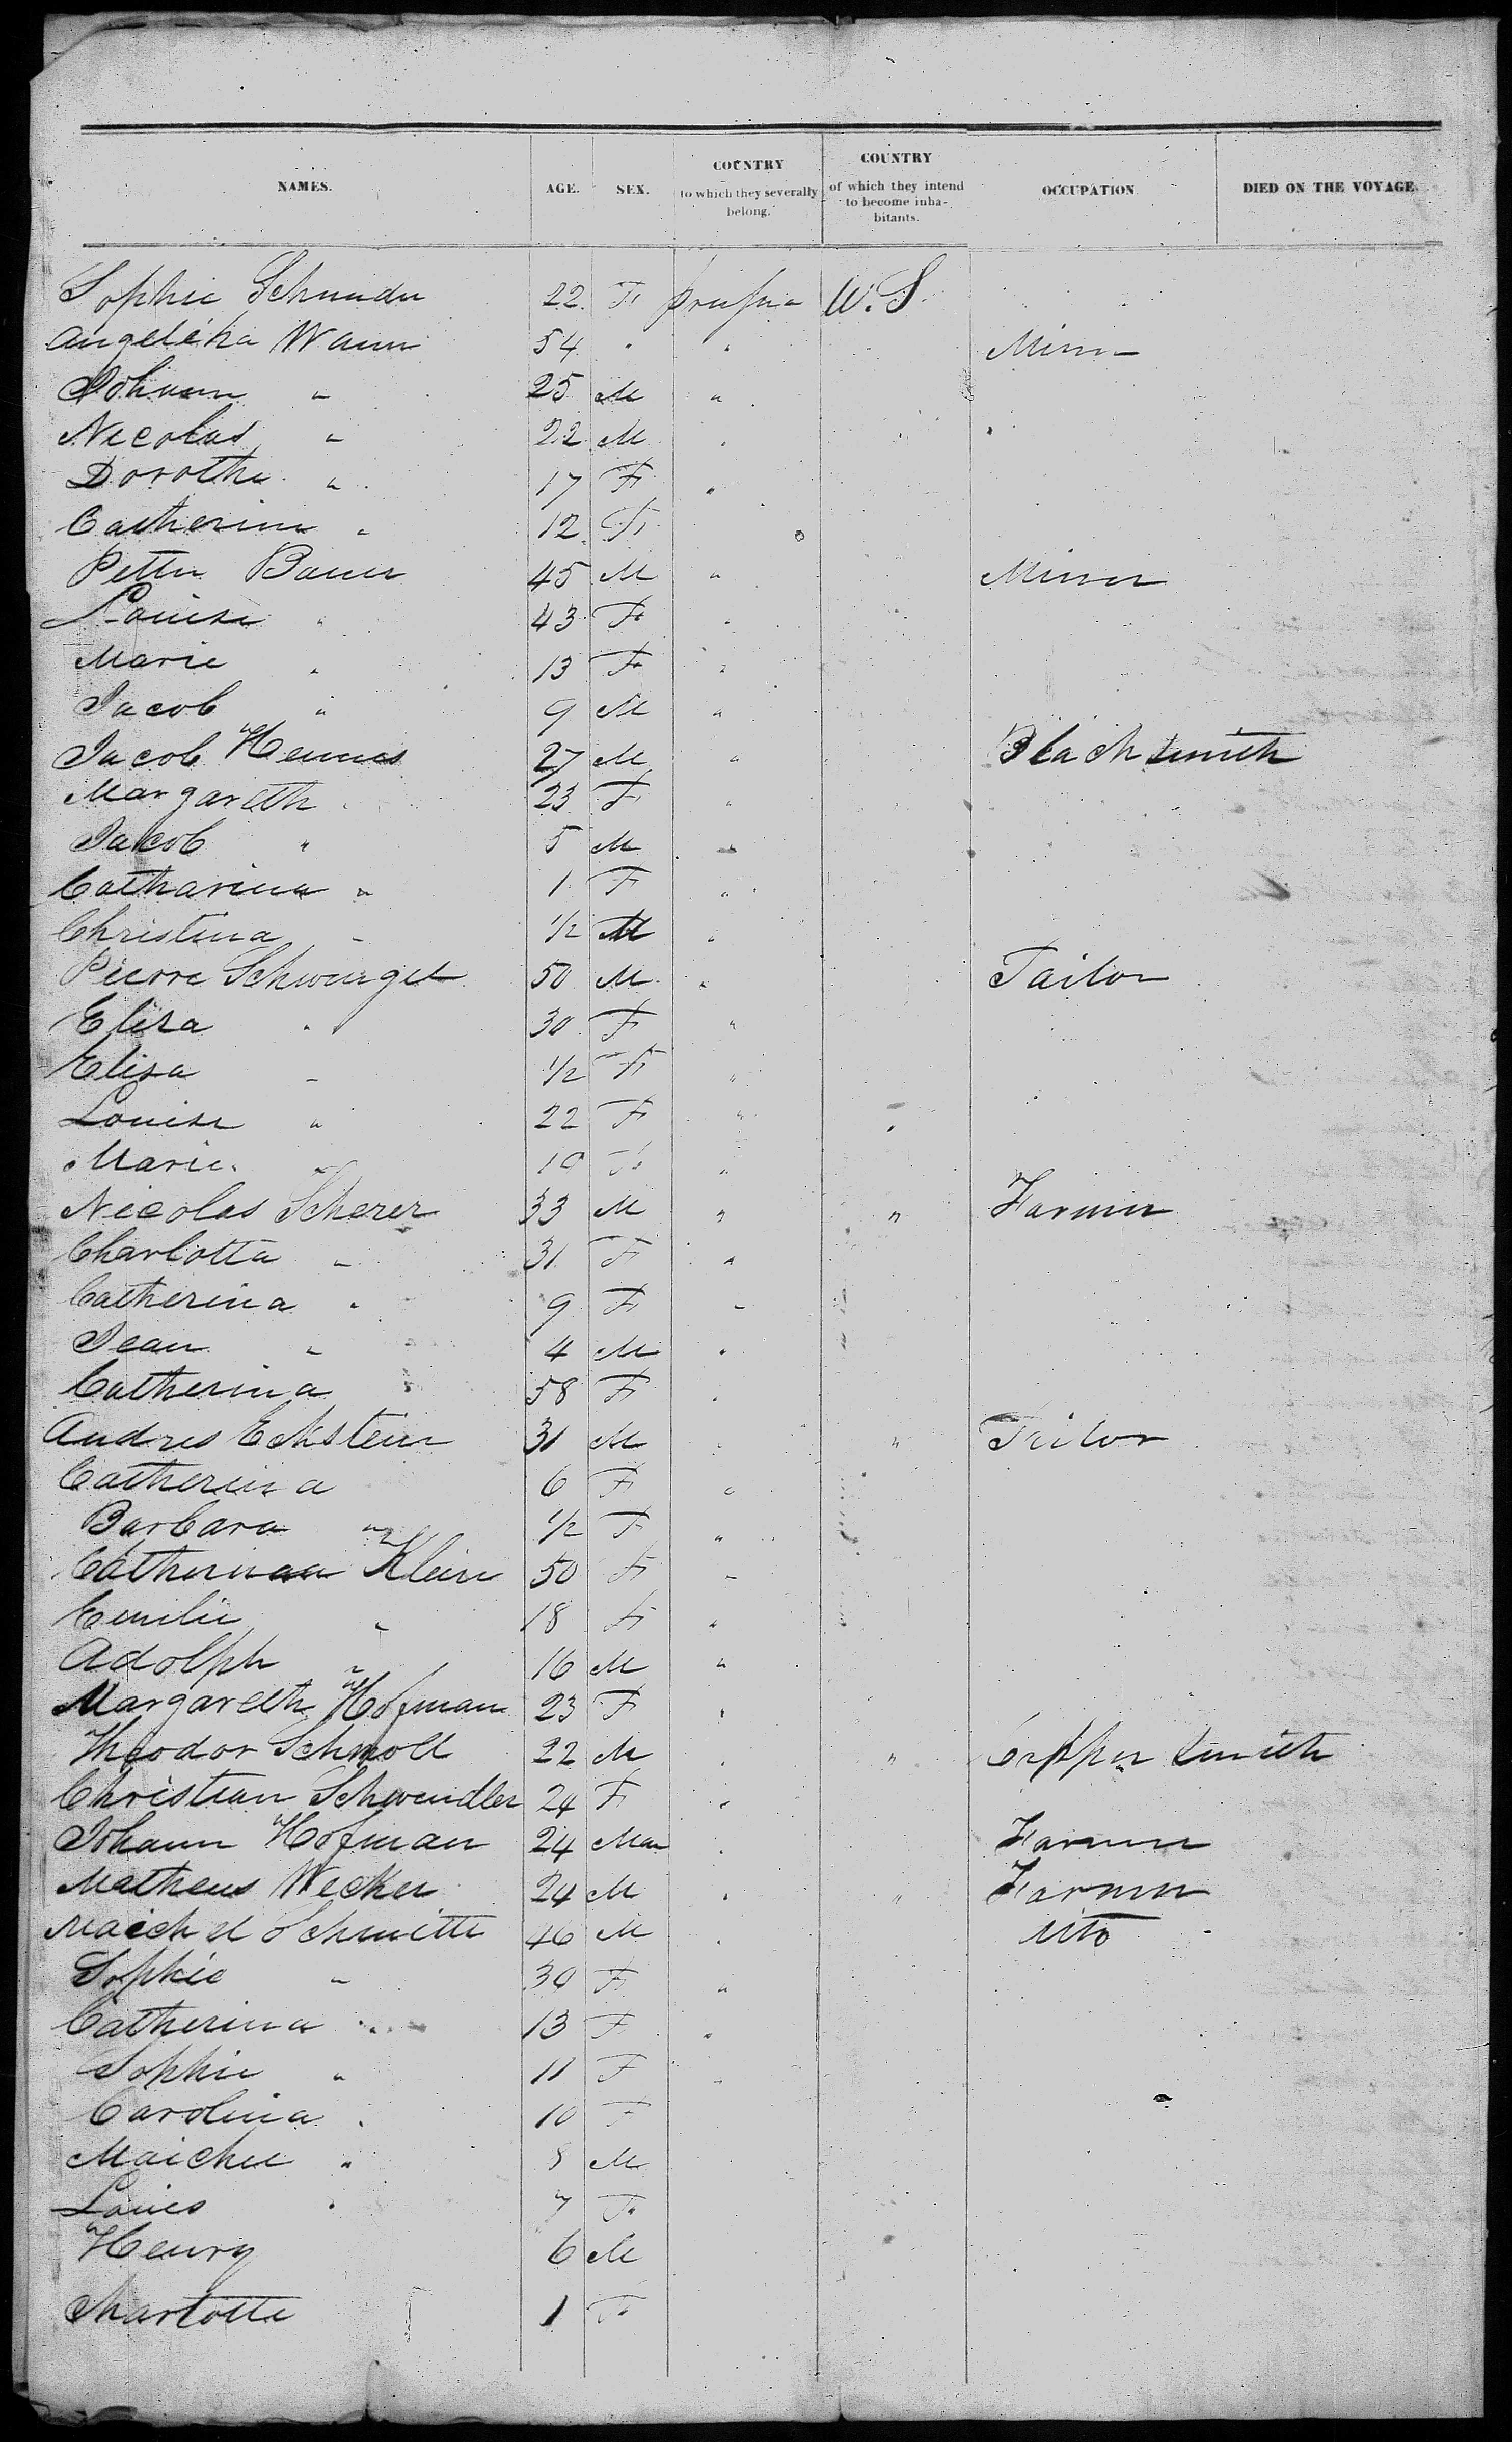 NAMES. AGE. SEX. COUNTRY to which they severally belong. COUNTRY of which they intend to become inhabitants. OCCUPATION DIED ON THE VOYAGE.
Sophie Schneider 22 F Prussia U.S.
Angeleka Wann 54 " " Miner
Johann " 25 M "
Nicolas " 22 M "
Dorothe " 17 F "
Catherina " 12 F
Petter Bauer 45 M " Miner
Louise " 43 F "
Marie " 13 F "
Jacob " 9 M "
Jacob Hennes 27 M " Blacksmith
Margareth " 23 F "
Jacob " 5 M "
Catharina " 1 F "
Christina " 1/2 M "
Pierre Schwengel 50 M " Tailor
Elisa " 30 F "
Elisa " 1/2 F "
Louise " 22 F "
Marie " 10 F "
Nicolas Scherer 33 M " " Farmer
Charlotta " 31 F "
Catherina " 9 F "
Jean " 4 M "
Catherina " 58 F "
Andres Eckstein 31 M " " Tailor
Catherina 6 F "
Barbara " 1/2 F "
Catherina Klein 50 F "
Emilie " 18 F "
Adolph " 16 M "
Margareth Hofman 23 F "
Theodor Schmoll 22 M " " Copper Smith
Christian Schwendler 24 F "
Johann Hofman 24 Man " " Farmer
Matheus Wecker 24 M " " Farmer
Maichel Schmitt 46 M " dito
Sophie " 30 F "
Catherina " 13 F "
Sophie " 11 F "
Carolina " 10 F
Maichel " 8 M
Louis " 7 F
Henry 6 M
Charlotte 1 F